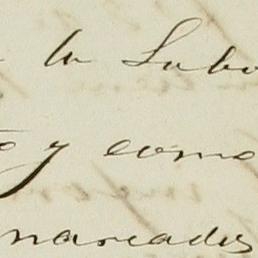 la Labo
o y como
narcados